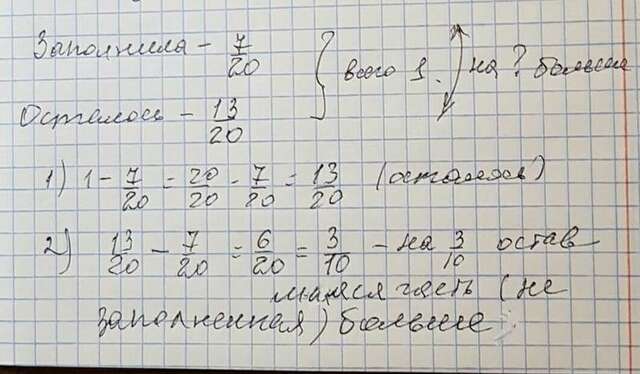 Заполнила - 7/20 } всего 1. на ? больше
Осталось - 13/20
1) 1 - 7/20 = 20/20 - 7/20 = 13/20 (осталось)
2) 13/20 - 7/20 = 6/20 = 3/10 - на 3/10 остав
шаяся часть (не
заполненная) больше.